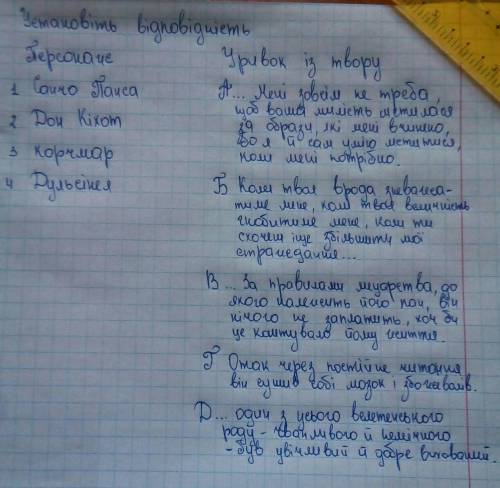 Установіть відповідність
Персонаж
Уривок із твору
1 Санчо Панса
2 Дон Кіхот
3 Корчмар
4 Дульсінея
А... Мені зовсім не треба,
щоб ваша милість мстилася
за образи, які мені вчинено,
бо я й сам умію мститися,
коли мені потрібно.
Б Коли твоя врода зневажа-
тиме мене, коли твоя величність
гнобитиме мене, коли ти
схочеш іще збільшити мої
страждання...
В ... За правилами лицарства, до
якого належить його пан, він
нічого не заплатить, хоч би
це коштувало йому життя.
Г Отак через постійне читання
він сушив собі мозок і збожеволів.
Д ... один з усього велетенського
роду - чванливого й нелічного
- був увічливий й добре вихований.